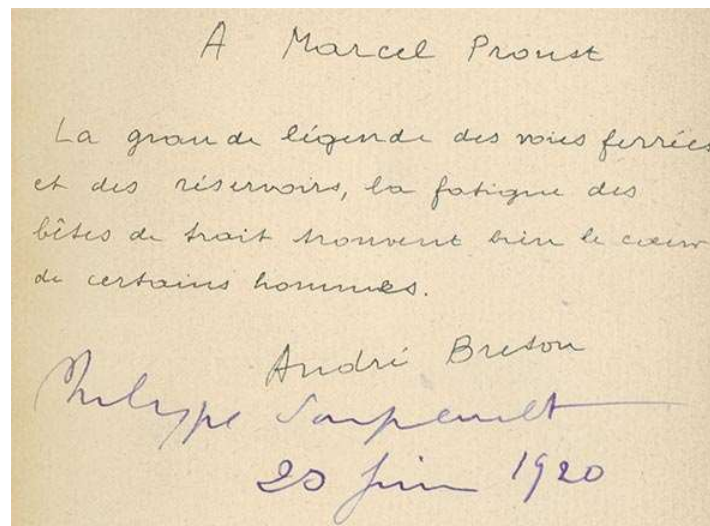 A Marcel Proust
La grande légende des voies ferrées
et des réservoirs, la fatigue des
bêtes de trait trouvent bien le cœur
de certains hommes.
André Breton
Philippe Soupault
20 juin 1920